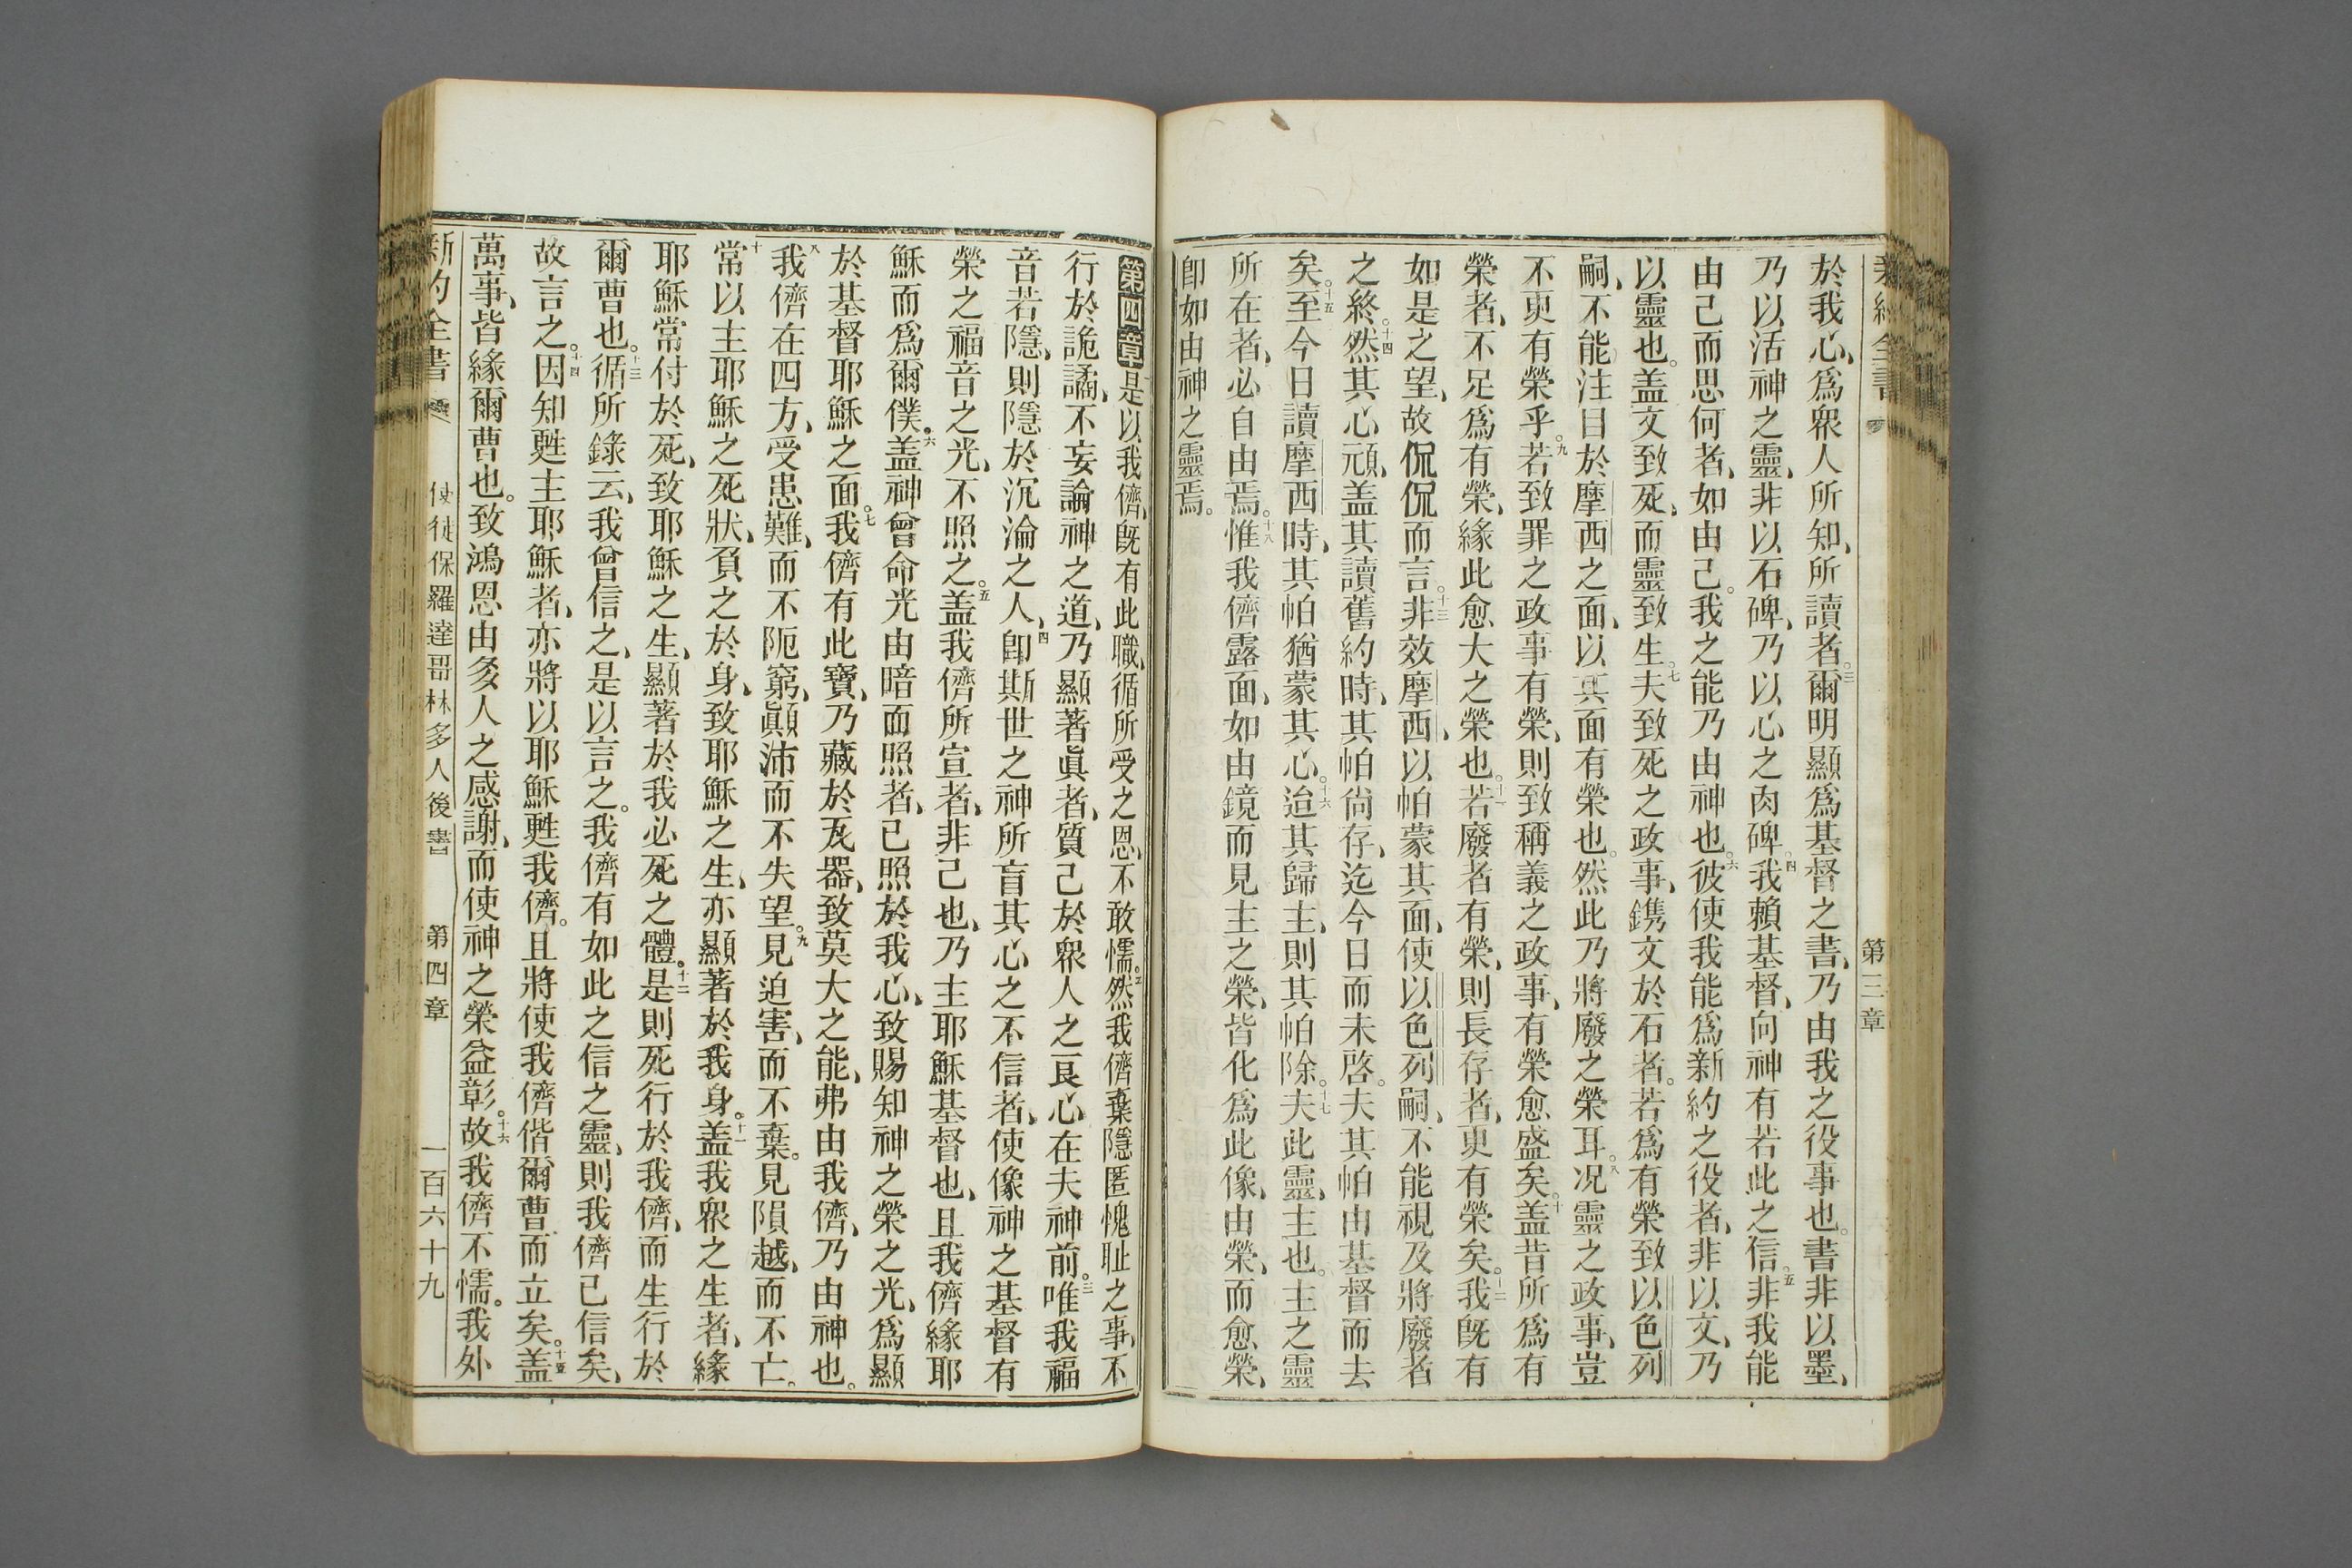 新約全書
第三章
於我心、爲衆人所知、所讀者。三爾明顯爲基督之書、乃由我之役事也。書非以墨、
乃以活神之靈、非以石碑、乃以心之肉碑。四我賴基督、向神有若此之信。五非我能
由己而思何者、如由己。我之能乃由神也。六彼使我能爲新約之役者、非以文、乃
以靈也。盖文致死、而靈致生。七夫致死之政事、鐫文於石者。若爲有榮致以色列
嗣、不能注目於摩西之面、以其面有榮也。然此乃將廢之榮耳。八况靈之政事、豈
不更有榮乎。九若致罪之政事有榮、則致稱義之政事、有榮愈盛矣。十盖昔所爲有
榮者、不足爲有榮、緣此愈大之榮也。十一若廢者有榮、則長存者、更有榮矣。十二我旣有
如是之望、故侃侃而言。十三非效摩西、以帕蒙其面、使以色列嗣、不能視及將廢者
之終。十四然其心頑、盖其讀舊約時、其帕尙存、迄今日而未啓。夫其帕由基督而去
矣。十五至今日讀摩西時、其帕猶蒙其心。十六迨其歸主、則其帕除。十七夫此靈、主也。主之靈
所在者、必自由焉。十八惟我儕露面、如由鏡而見主之榮、皆化爲此像、由榮、而愈榮、
卽如由神之靈焉。
第四章 是以我儕、旣有此職、循所受之恩、不敢懦。二然我儕棄隱匿愧耻之事、不
行於詭譎、不妄論神之道、乃顯著眞者、質己於衆人之良心在夫神前。三唯我福
音若隱、則隱於沉淪之人、四卽斯世之神所盲其心之不信者、使像神之基督有
榮之福音之光、不照之。五盖我儕所宣者、非己也、乃主耶穌基督也、且我儕緣耶
穌而爲爾僕。六盖神曾命光由暗而照者、已照於我心、致賜知神之榮之光、爲顯
於基督耶穌之面。七我儕有此寶、乃藏於瓦器、致莫大之能、弗由我儕、乃由神也。
八我儕在四方、受患難、而不阨窮、顚沛而不失望。九見迫害、而不棄。見隕越、而不亡。
十常以主耶穌之死狀、負之於身、致耶穌之生、亦顯著於我身。十一盖我衆之生者、緣
耶穌常付於死、致耶穌之生、顯著於我必死之體。十二是則死行於我儕、而生行於
爾曹也。十三循所錄云、我曾信之、是以言之。我儕有如此之信之靈、則我儕已信矣、
故言之。十四因知甦主耶穌者、亦將以耶穌甦我儕。且將使我儕偕爾曹而立矣。十五盖
萬事、皆緣爾曹也。致鴻恩由多人之感謝、而使神之榮益彰。十六故我儕不懦。我外
新約全書
使徒保羅達哥林多人後書
第四章
一百六十九